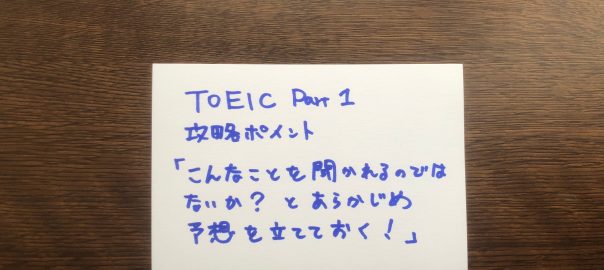 TOEIC Part 1
攻略ポイント
「こんなことを聞かれるのでは
ないか？とあらかじめ
予想を立てておく！」